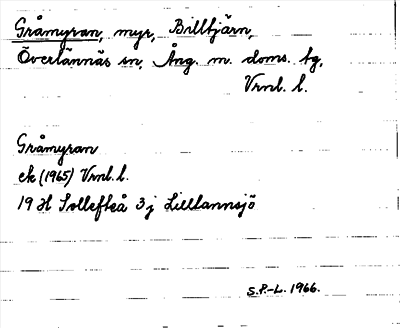 Gråmyran, myr, Billtjärn,
Överlännäs sn, Ång. m. doms. bg,
Vrnl. l.
Gråmyran
ek (1965) Vrnl. l.
19 H Sollefteå 3 j Lilltannsjö
S.P.-L. 1966.